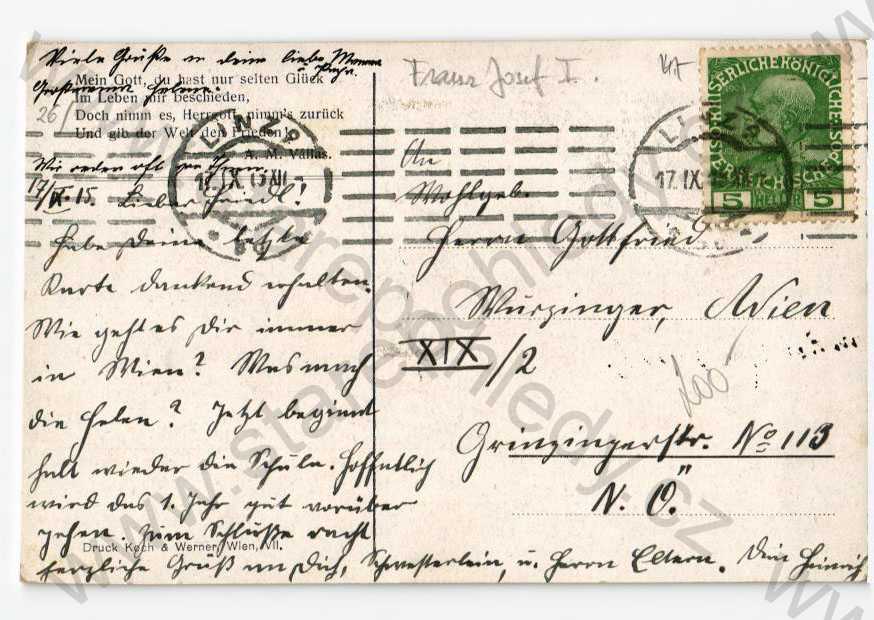 Viele Grüße an deine liebe Mamma
u. Papa.
Mein Gott, du hast nur selten Glück
Im Leben mir beschieden,
Doch nimm es, Herrgott, nimm's zurück
Und gib der Welt den Frieden!
A. M. Vallas.
Wir reden oft von Ihnen.
17/IX. 15. Lieber Friedl!
Habe Deine letzte
Karte dankend erhalten.
Wie geht es Dir immer
in Wien? Was mach
die Helen? Jetzt beginnt
halt wieder die Schule. Hoffentlich
wird das 1. Jahr gut vorüber
gehen. Zum Schluße recht
herzliche Grüß an Dich, Schwesterlein, u. Herrn Eltern. Dein Heinrich
Druck Koch & Werner, Wien, VII.
26/
Franz Josef I.
LINZ 2
17. IX. 15 XII
LINZ 2
17. IX.
KAISERLICHEKÖNIGLICHE
ÖSTERREICHISCHE POST
5 HELLER 5
An
Wohlgeb.
Herrn Gottfried
Wurzinger, Wien
XIX/2
200
Grinzingerstr. No 113
N. Ö.
www.starepohledy.cz